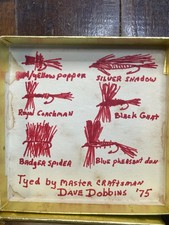 Yellow Popper
Silver Shadow
Royal Coachman
Black Gnat
Badger Spider
Blue Pheasant Dun
Tyed by Master Craftsman
Dave Dobbins '75